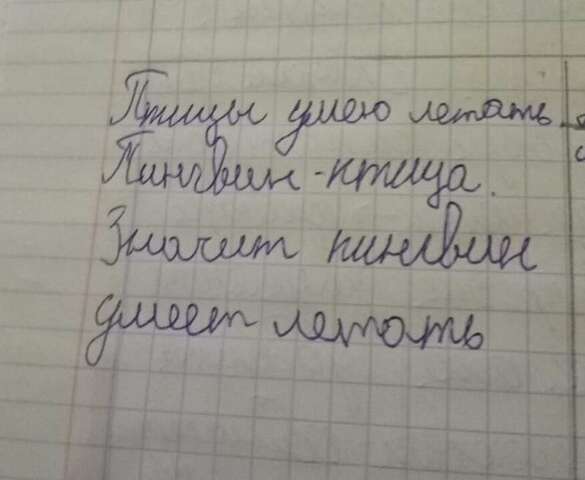 Птицы умею летать.
Пингвин - птица.
Значит пингвин
умеет летать